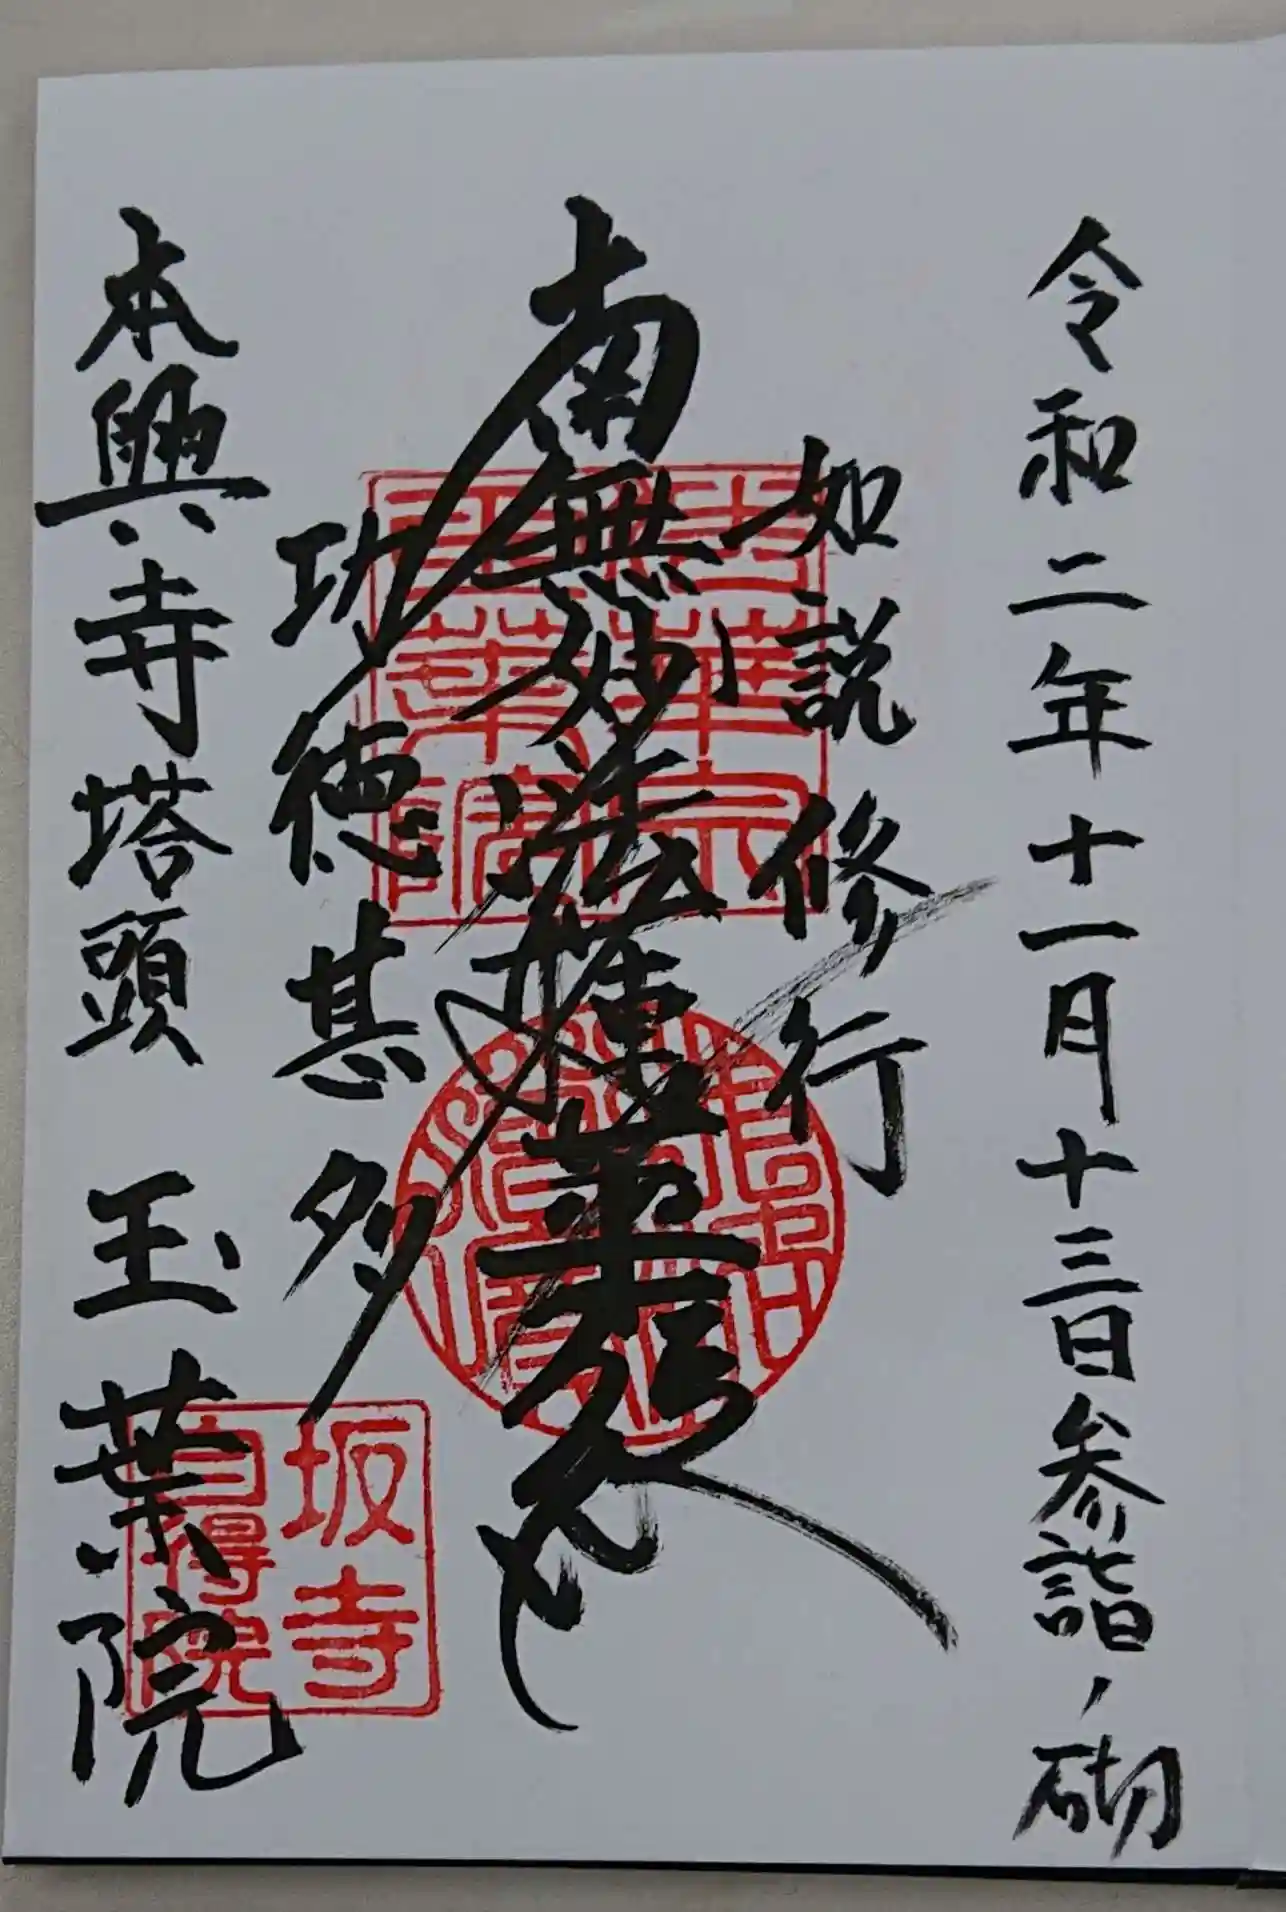 令和二年十一月十三日参詣ノ砌
如説修行
南無妙法蓮華経
功徳甚多
本興寺塔頭 玉葉院
法華宗
玉葉院
坂寺
自得院